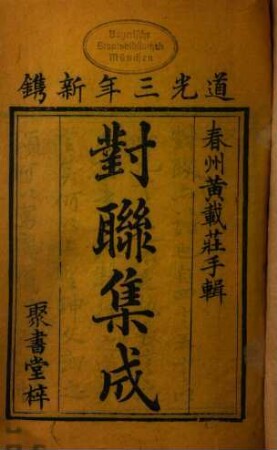 Bayerische
Staatsbibliothek
München
道光三年新鐫
春州黃載莊手輯
對聯集成
聚書堂梓